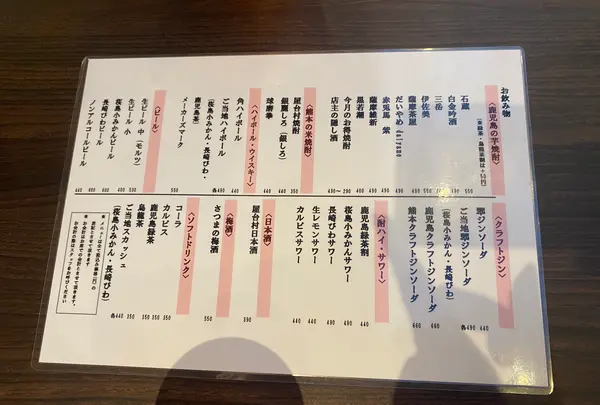 お飲み物
〈鹿児島の芋焼酎〉
(※緑茶・烏龍茶割は+50円)
石蔵
白金吟酒
三岳
伊佐美
薩摩茶屋
だいやめ daiyame
赤兎馬 紫
薩摩維新
黒若潮
今月のお得焼酎
店主の隠し酒
〈熊本の米焼酎〉
屋台村焼酎 350
銀麗しろ(銀しろ) 440
球磨拳 440
〈ハイボール・ウイスキー〉
角ハイボール 440
ご当地ハイボール
(桜島小みかん・長崎びわ・
鹿児島茶) 各490
メーカーズマーク 550
〈ビール〉
生ビール 中 (モルツ) 530
生ビール 小 400
桜島小みかんビール 600
長崎びわビール 600
ノンアルコールビール 440
〈クラフトジン〉
翠ジンソーダ 440
ご当地翠ジンソーダ
(桜島小みかん・長崎びわ) 各490
鹿児島クラフトジンソーダ 660
熊本クラフトジンソーダ 660
〈酎ハイ・サワー〉
鹿児島緑茶割 440
桜島小みかんサワー 490
長崎びわサワー 490
生レモンサワー 440
カルピスサワー 440
〈日本酒〉
屋台村日本酒 390
〈梅酒〉
さつまの梅酒 550
〈ソフトドリンク〉
コーラ 350
カルピス 350
鹿児島緑茶 350
烏龍茶 350
ご当地スカッシュ
(桜島小みかん・長崎びわ) 各440